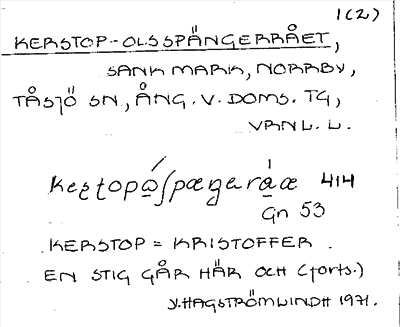 1(2)
KERSTOP-OLSSPÄNGERRÅET,
SANK MARK, NORRBY,
TÅSJÖ SN, ÅNG. V. DOMS. TG,
VRNL. L.
414
Gn 53
KERSTOP = KRISTOFFER.
EN STIG GÅR HÄR OCH (forts.)
V. HAGSTRÖM LINDH 1971.